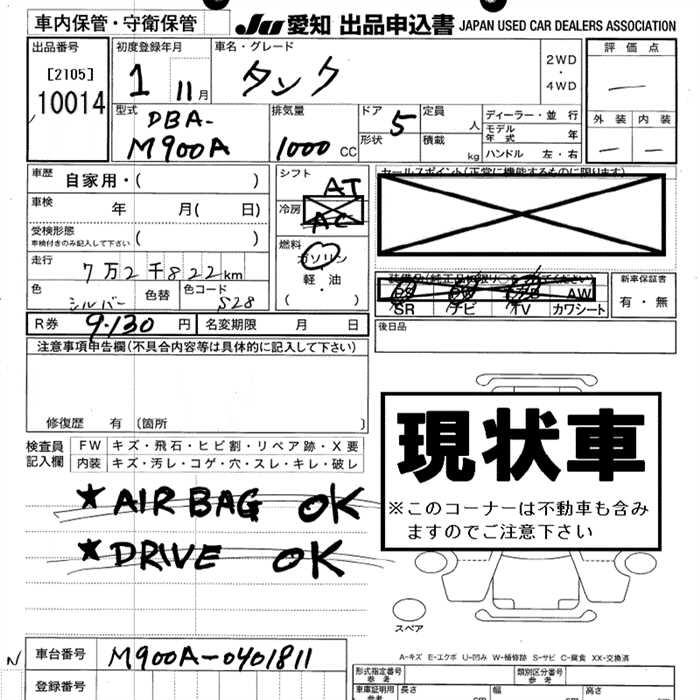 車内保管・守衛保管
JU 愛知 出品申込書 JAPAN USED CAR DEALERS ASSOCIATION
出品番号
[2105]
10014
初度登録年月
1 11 月
車名・グレード
タンク
2WD
・
4WD
評価点
外装 内装
型式
DBA-
M900A
排気量
1000 CC
ドア 5
形状
定員 人
積載 kg
ディーラー・並行
モデル年式 年
ハンドル 左・右
車歴 自家用・( )
車検 年 月( 日)
受検形態
車検付きのみ記入して下さい ( )
走行
7万2千822km
色 シルバー 色替 色コード S28
シフト AT
冷房 AC
燃料
ガソリン
軽・油
( )
セールスポイント(正常に機能するものに限ります)
AW
SR ナビ TV カワシート
新車保証書
有・無
R券 9.130 円 名変期限 月 日
後日品
注意事項申告欄(不具合内容等は具体的に記入して下さい)
修復歴 有 [箇所 ]
検査員
記入欄
FW キズ・飛石・ヒビ割・リペア跡・X要
内装 キズ・汚レ・コゲ・穴・スレ・キレ・破レ
★AIRBAG OK
★DRIVE OK
現状車
※このコーナーは不動車も含み
ますのでご注意下さい
スペア
A-キズ E-エクボ U-凹み W-補修跡 S-サビ C-腐食 XX-交換済
N 車台番号 M900A-0401811
登録番号
形式指定番号
参考
類別区分番号
参考
車庫証明用
参考
長さ cm 幅 cm 高さ cm